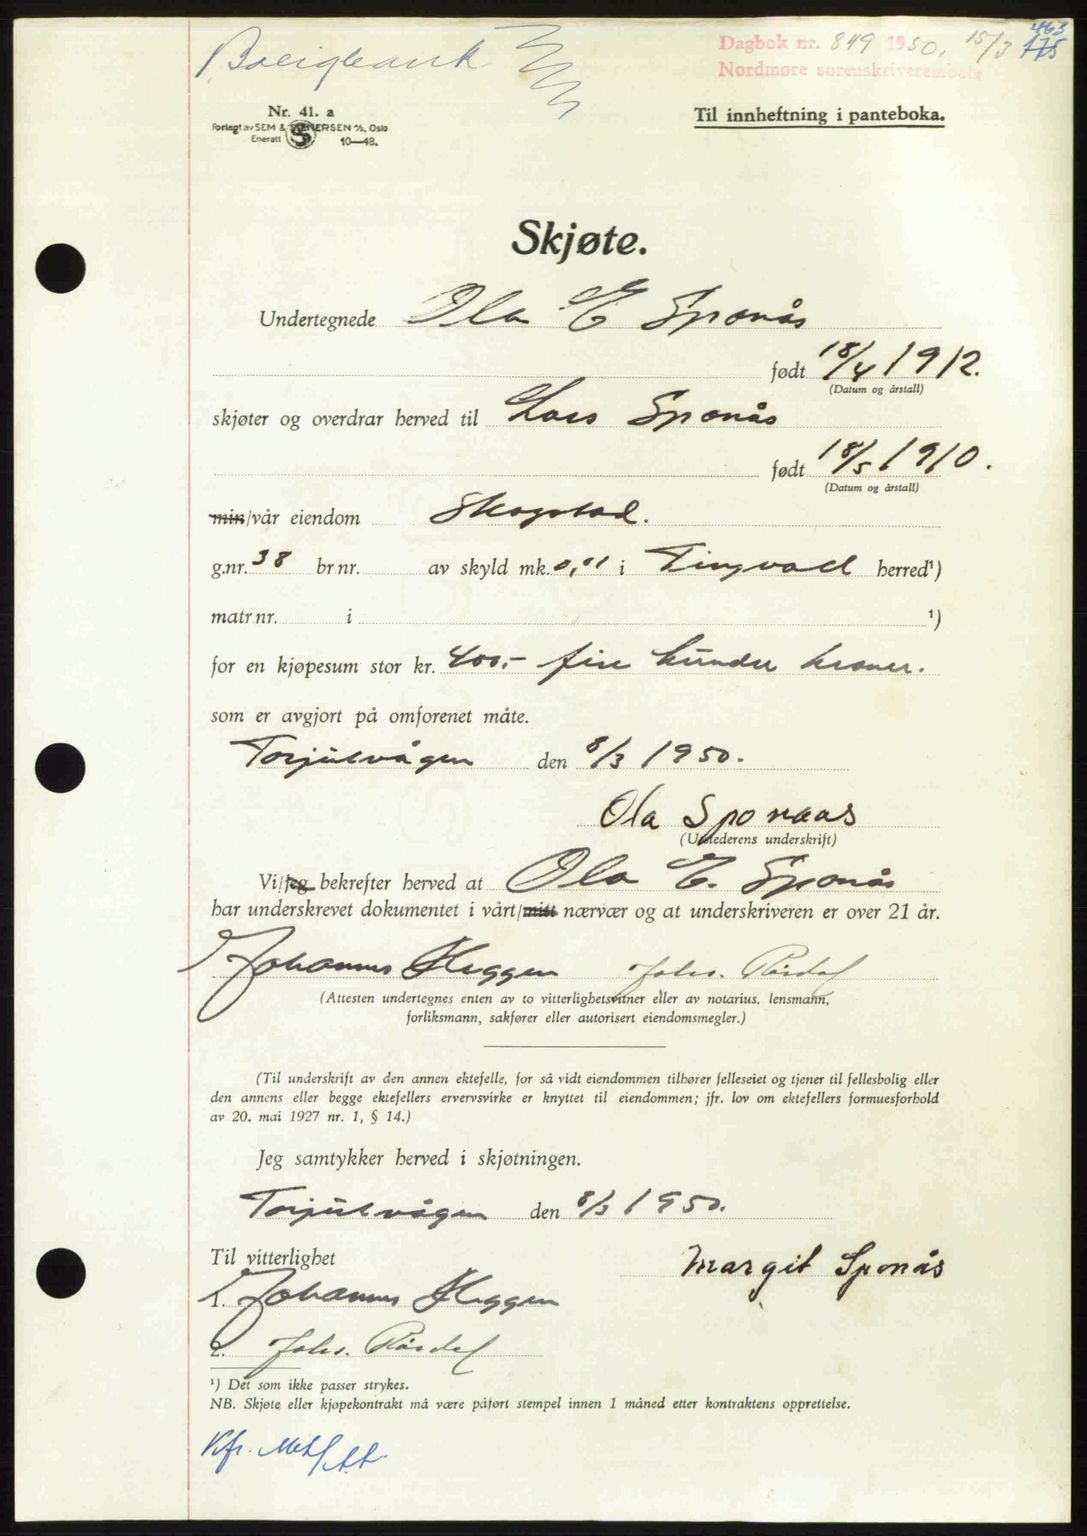 Boligbank
Dagbok nr. 849 1950, 15/3 463
775
Nordmøre sorenskriverembete
Nr. 41. a
Forlagt av SEM & STENERSEN A/S, Oslo
Enerett 10—48.
Til innheftning i panteboka.
Skjøte.
Undertegnede Ola E Sponås
født 18/4 1912.
(Datum og årstall)
skjøter og overdrar herved til Lars Sponås
født 18/5 1910.
(Datum og årstall)
min/vår eiendom Skogstad.
g.nr. 38 br.nr. av skyld mk. 0,01 i Tingvoll herred¹)
matr.nr. i ¹)
for en kjøpesum stor kr. 400.- fire hunder kroner.
som er avgjort på omforenet måte.
Torjulvågen den 8/3 1950.
Ola Sponaas
(Utstederens underskrift)
Vi/jeg bekrefter herved at Ola E. Sponås
har underskrevet dokumentet i vårt/mitt nærvær og at underskriveren er over 21 år.
Johannes Heggem Johs. Rørdal
(Attesten undertegnes enten av to vitterlighetsvitner eller av notarius, lensmann,
forliksmann, sakfører eller autorisert eiendomsmegler.)
(Til underskrift av den annen ektefelle, for så vidt eiendommen tilhører felleseiet og tjener til fellesbolig eller
den annens eller begge ektefellers ervervsvirke er knyttet til eiendommen; jfr. lov om ektefellers formuesforhold
av 20. mai 1927 nr. 1, § 14.)
Jeg samtykker herved i skjøtningen.
Torjulvågen den 8/3 1950.
Til vitterlighet
Margit Sponås
1. Johannes Heggem
2. Johs. Rørdal
¹) Det som ikke passer strykes.
NB. Skjøte eller kjøpekontrakt må være påført stempel innen 1 måned etter kontraktens opprettelse.